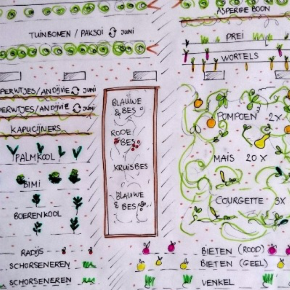 ASPERGE BOON
TUINBONEN / PAKSOI juni
PREI
WORTELS
PERWTJES/ANDIJVIE juni
PERWTJES/ANDIJVIE juni
KAPUCIJNERS
PALMKOOL
BIMI
BOERENKOOL
RADIJS
SCHORSENEREN
SCHORSENEREN
BLAUWE
BES
RODE
BES
KRUISBES
BLAUWE
BES
POMPOEN 2x
MAIS 20 X
COURGETTE 3x
BIETEN (ROOD)
BIETEN (GEEL)
VENKEL